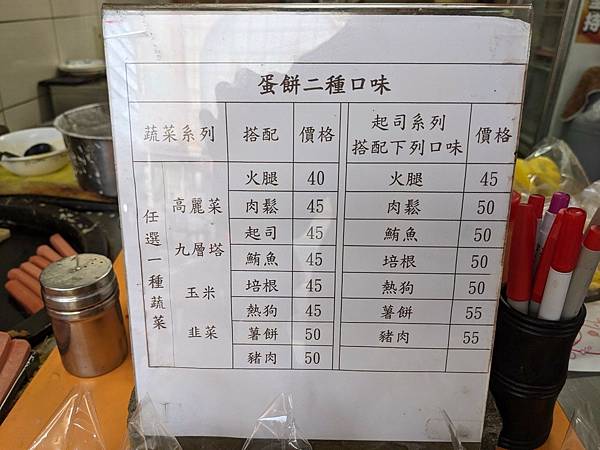 蛋餅二種口味
蔬菜系列 搭配 價格 起司系列 搭配下列口味 價格
任選一種蔬菜
高麗菜
九層塔
玉米
韭菜
火腿 40 火腿 45
肉鬆 45 肉鬆 50
起司 45 鮪魚 50
鮪魚 45 培根 50
培根 45 熱狗 50
熱狗 45 薯餅 55
薯餅 50 豬肉 55
豬肉 50
持